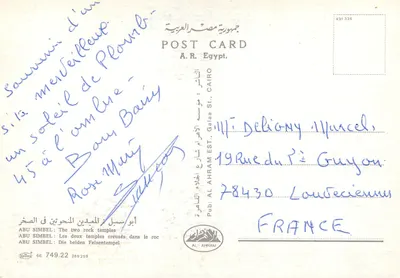 جمهورية مصر العربية
POST CARD
A. R. Egypt.
Souvenir d'un
site merveilleux
un soleil de Plomb
45 à l'ombre -
Bons Baisers
Rose Mary
Publ. AL AHRAM EST. Galaa St., CAIRO
Mr Deligny Marcel
19 Rue du Pt Guyon
78430 Louveciennes
FRANCE
AL AHRAM
أبو سمبل : المعبدين المنحوتين فى الصخر
ABU SIMBEL : The two rock temples
ABU SIMBEL : Les deux temples creusés dans le roc
ABU SIMBEL : Die beiden Felsentempel
749.22